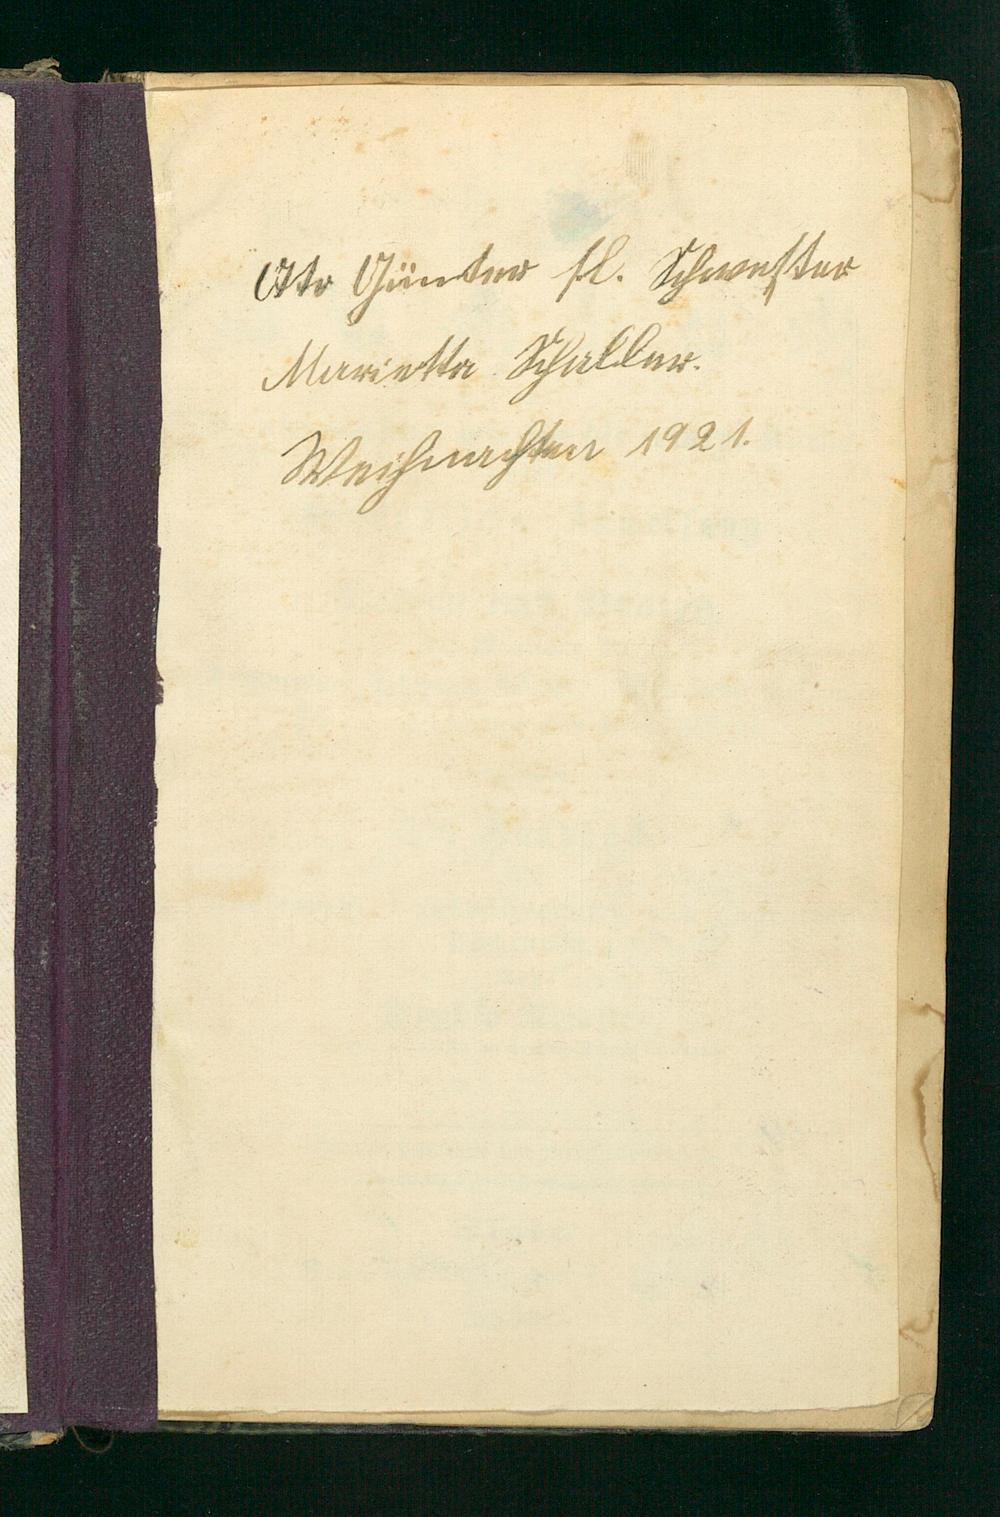 Otto Günter sl. Schwester
Marietta Schaller.
Weihnachten 1921.